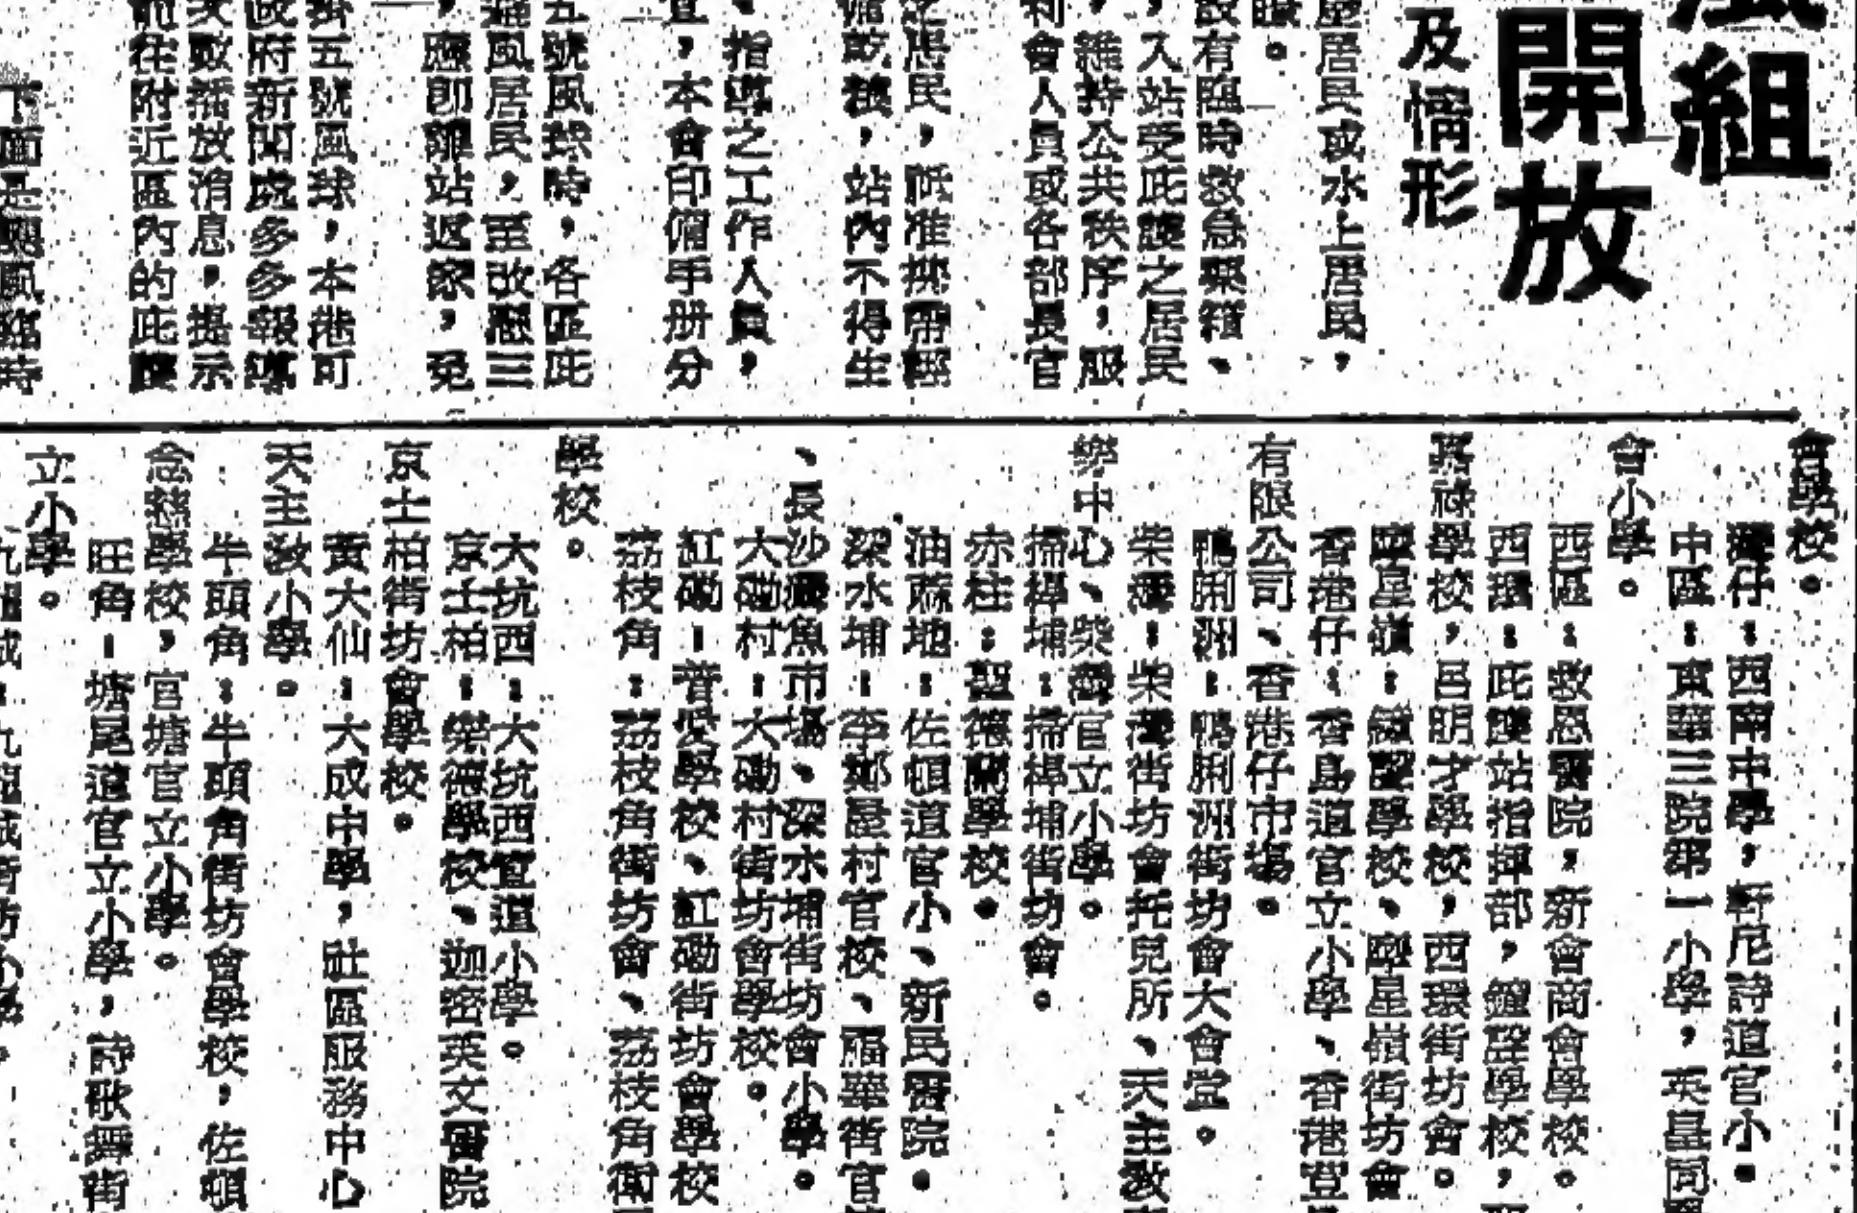 組
開放
及情形
居民或水上居民，
設有臨時救急藥箱、
，入站受庇護之居民
，維持公共秩序，服
利會人員或各部長官
民，祇准携帶輕
備乾糧，站內不得生
、指導之工作人員，
宜，本會印備手册分
五號風球時，各區庇
避風居民，至改懸三
，應即離站返家，免
掛五號風球，本港可
政府新聞處多多報導
放消息，提示
前往附近區內的庇護
下面是颶風臨時
會學校。
灣仔：西南中學，軒尼詩道官小。
中區：東華三院第一小學，英皇同
會小學。
西區：救恩醫院，新會商會學校。
西環：庇護站指揮部，鐘聲學校，
學校，呂明才學校，西環街坊會。
摩星嶺：鐘聲學校、摩星嶺街坊會
香港仔：香島道官立小學、香港
有限公司、香港仔市場。
鴨脷洲：鴨脷洲街坊會大會堂。
柴灣：柴灣街坊會托兒所、天主教
樂中心、柴灣官立小學。
掃桿埔：掃桿埔街坊會。
赤柱：聖德蘭學校。
油蔴地：佐頓道官小、新民醫院。
深水埔：李鄭屋村官校、福華街官
、長沙灣魚市場、深水埔街坊會小學。
大磡村：大磡村街坊會學校。
紅磡：普愛學校、紅磡街坊會學校
荔枝角：荔枝角街坊會、荔枝角衛
學校。
大坑西：大坑西宣道小學。
京士柏：樂德學校、迦密英文醫院
京士柏街坊會學校。
黃大仙：大成中學，社區服務中心
天主教小學。
牛頭角：牛頭角街坊會學校，佐頓
念慈學校，官塘官立小學。
旺角：塘尾道官立小學，詩歌舞街
立小學。
九龍城：九龍城街坊小學。